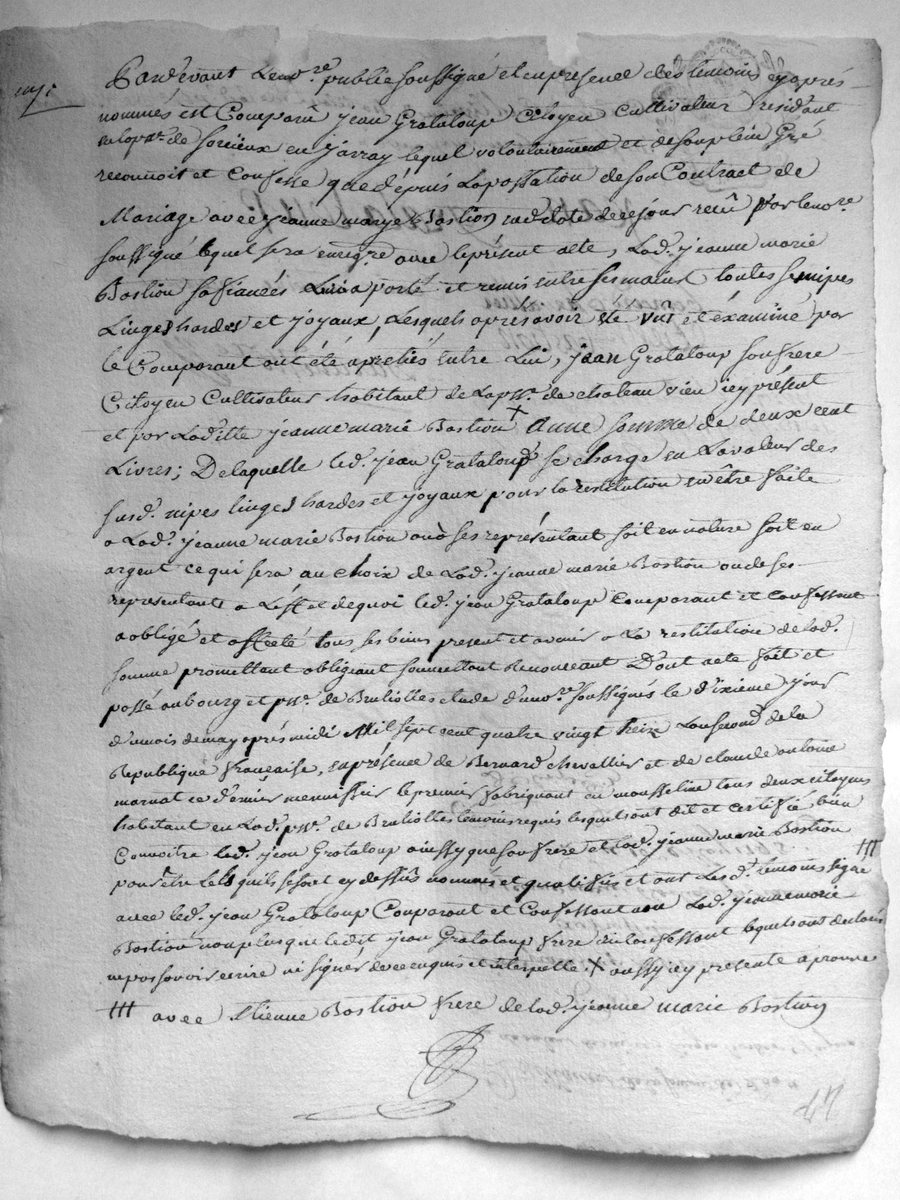 Pardevant Le no.re public soussigné et en presence des temoins cy après
nommés est Comparû jean Grataloup Citoyen Cultivateur residant
en la par. de Sorcieux en Jarray lequel volontairement et de son plein Gré
reconnoit et Confesse que dépuis La passation de son Contract de
Mariage avec jeanne marye Bastion sad. date de ce jour recû par le no.re
soussigné lequel sera enreg.re avec le présent acte, Lad. jeanne marie
Bastion sa fiancée Lui a porté et remis entre ses mains toutes ses nipes
Linges hardes et joyaux, Lesquels après avoir été vus et éxaminé par
le Comparant ont été apretiés entre Lui, jean Grataloup son frere
Citoyen Cultivateur habitant de La p.sse de chateau vieu icy présent
et par Laditte jeanne marie Bastion + a une somme de deux cent
Livres; De laquelle led. jean Grataloup se charge en La valeur des
susd. nipes linges hardes et joyaux pour la restitution en être faite
a Lad. jeanne marie Bastion ou à ses représentant soit en nature soit en
argent ce qui sera au choix de Lad. jeanne marie Bastion ou de ses
representants a L'éffet de quoi led. jean Grataloup Comparant et Confessant
a obligé et affecté tous ses biens present et avenir a La restitution de lad.
somme promettant obligeant soumettant Renonceant Dont acte fait et
passé au bourg et p.sse de Bruliolles etude d'u no.re soussignés le dixieme jour
d'u mois de may après midi Mil sept cent quatre vingt treize L'an second de la
Republique française, en présence de Bernard chevallier et de claude antoine
marnat ce dernier menuissier le premier fabriquant en mousseline tous deux citoyens
habitant en Lad. p.sse de Bruliolles temoins requis lesquels ont dit et certifié bien
Connoitre led. jean Grataloup ainssy que son frere et lad. jeanne marie Bastion
pour être tels qu'ils se sont cy dessûs nommés et qualifiés et ont Lesd. temoins signé ///
avec led. jean Grataloup Comparant et Confessant non Lad. jeanne marie
Bastion non plus que ledit jean Grataloup frere du Confessant lesquels ont declarés
ne pas savoir ecrire ni signer de ce enquis et interpellé. + aussy icy presente
/// avec Etienne Bastion frere de lad. jeanne marie Bastion